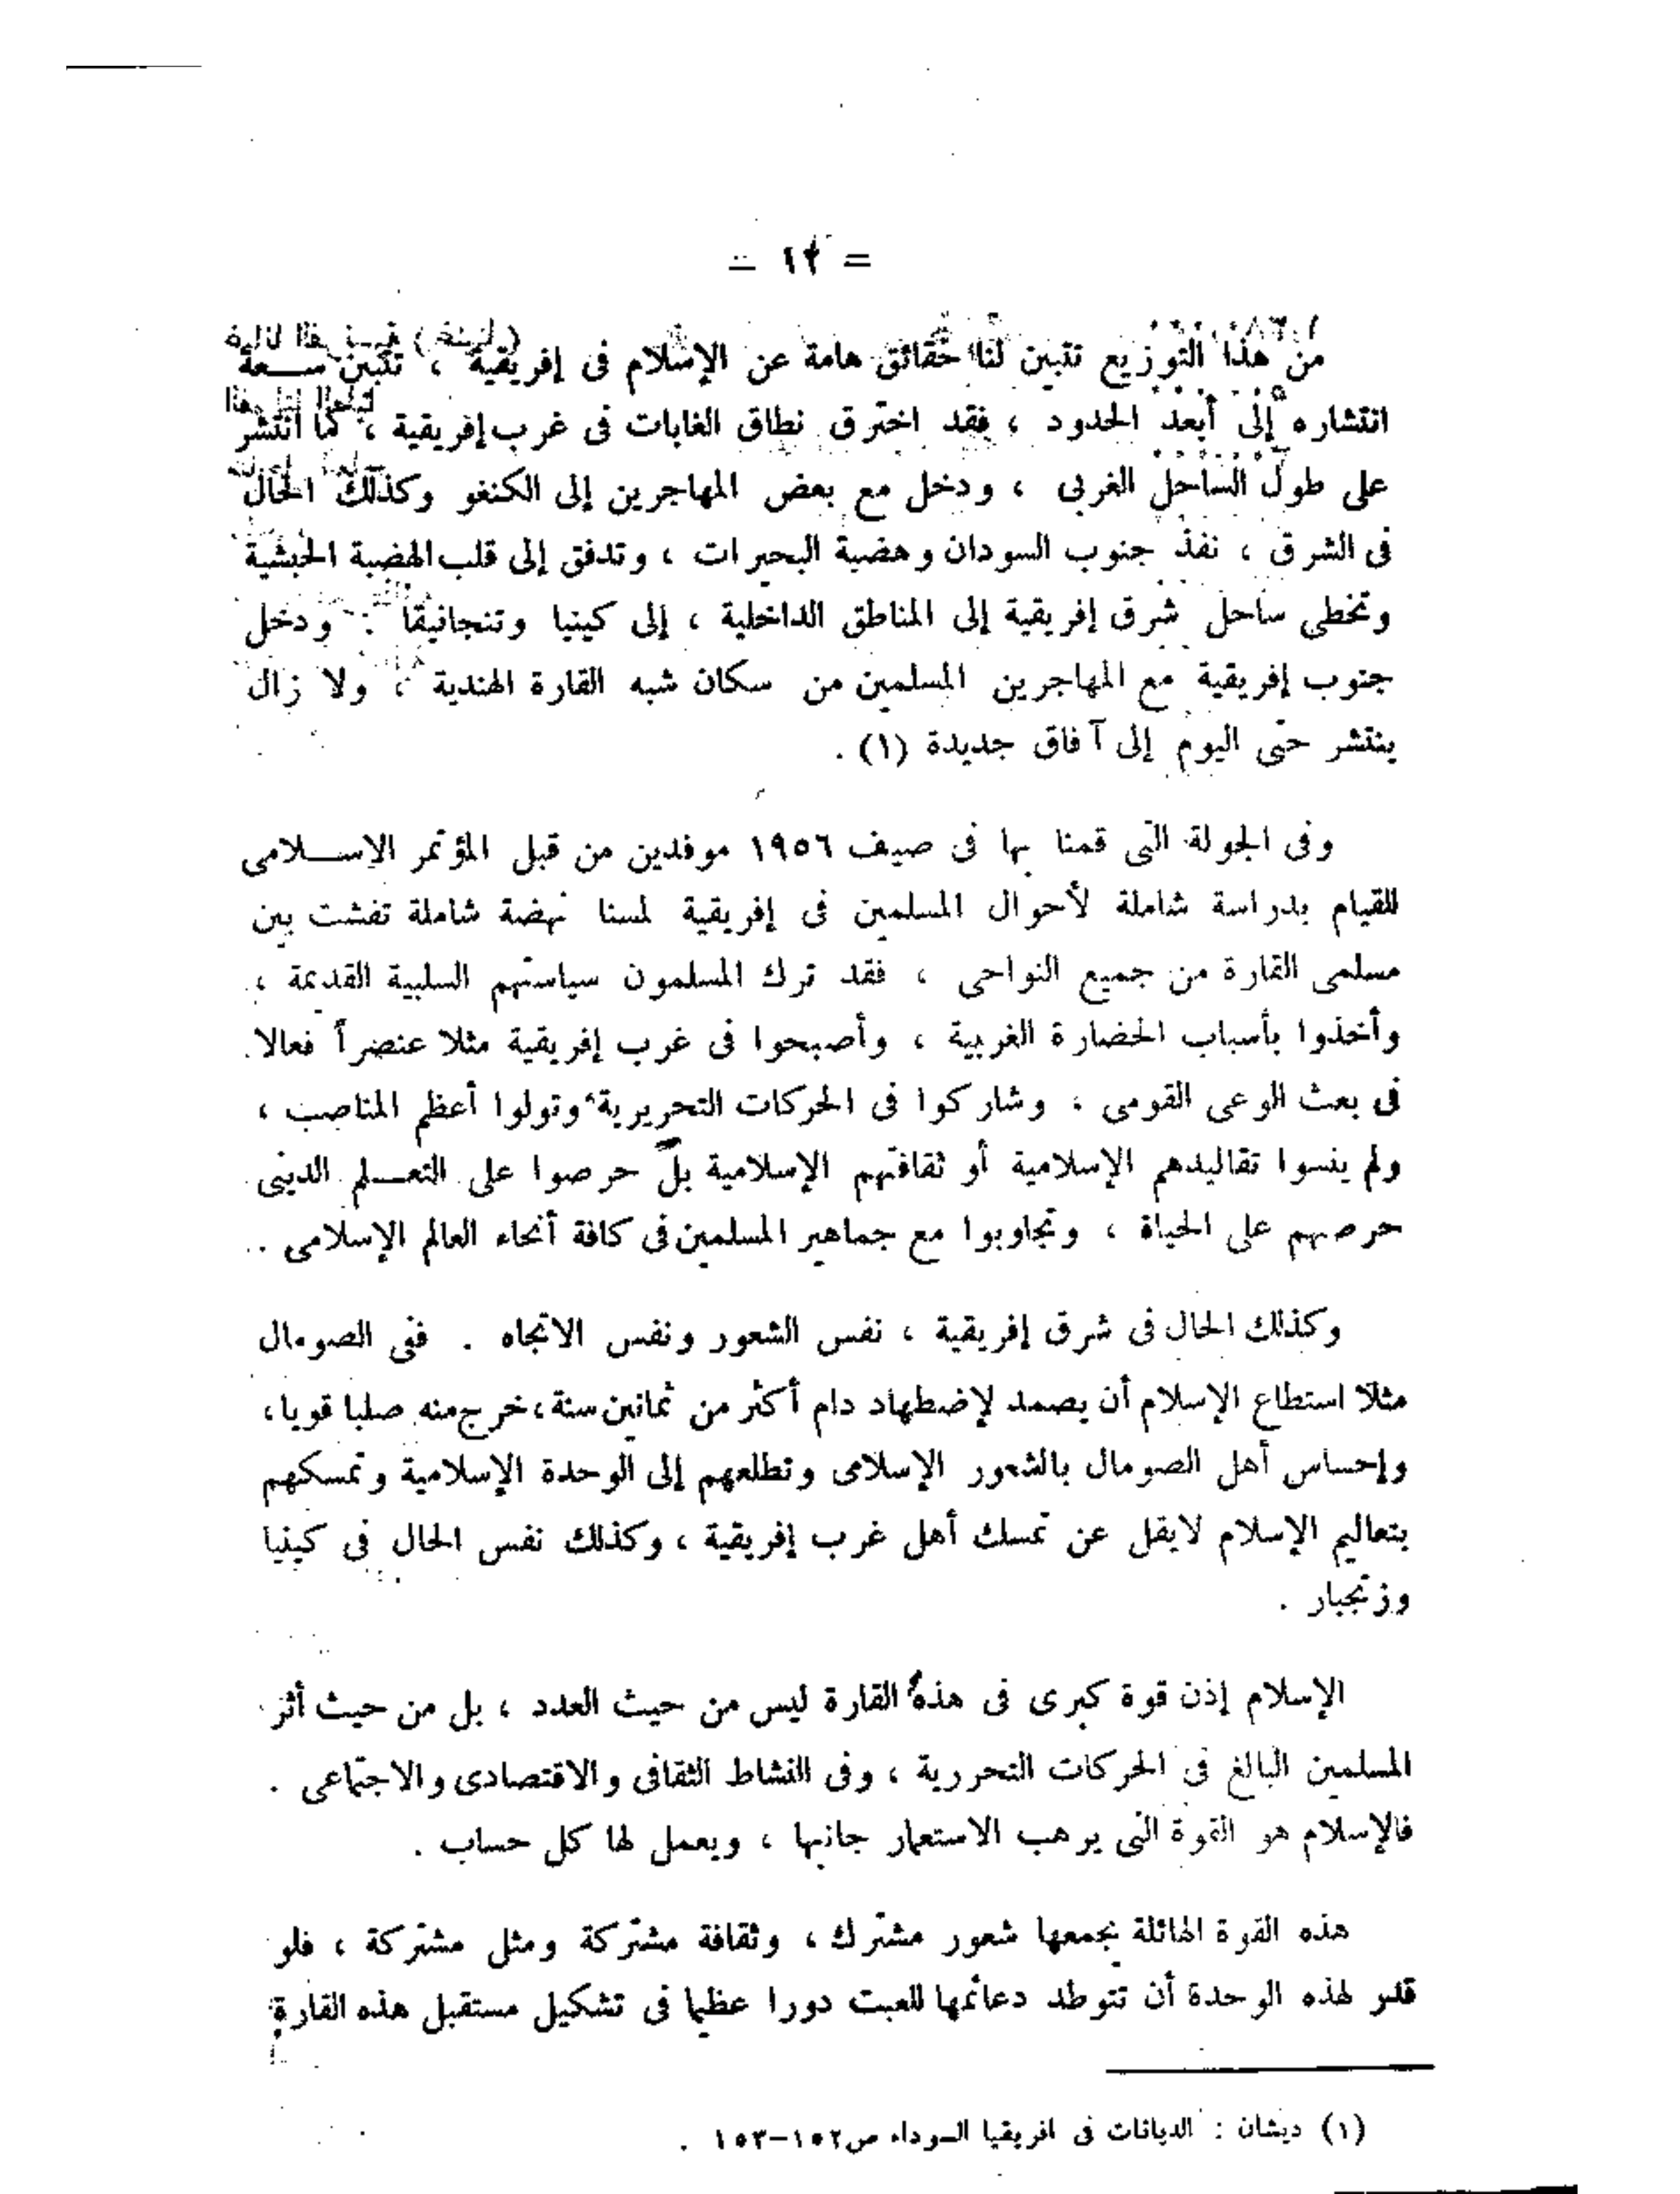 = ١٢ =
من هذا التوزيع تتبين لنا حقائق هامة عن الإسلام فى إفريقية ، تتبين سعة
انتشاره إلى أبعد الحدود ، فقد اخترق نطاق الغابات فى غرب إفريقية ، كما انتشر
على طول الساحل الغربى ، ودخل مع بعض المهاجرين إلى الكنغو وكذلك الحال
فى الشرق ، نفذ جنوب السودان وهضبة البحيرات ، وتدفق إلى قلب الهضبة الحبشية
وتخطى ساحل شرق إفريقية إلى المناطق الداخلية ، إلى كينيا وتنجانيقا . ودخل
جنوب إفريقية مع المهاجرين المسلمين من سكان شبه القارة الهندية ، ولا زال
ينتشر حتى اليوم إلى آفاق جديدة (١) .
وفى الجولة التى قمنا بها فى صيف ١٩٥٦ موفدين من قبل المؤتمر الإسلامى
للقيام بدراسة شاملة لأحوال المسلمين فى إفريقية لمسنا نهضة شاملة تفشت بين
مسلمى القارة من جميع النواحى ، فقد ترك المسلمون سياستهم السلبية القديمة ،
وأخذوا بأسباب الحضارة الغربية ، وأصبحوا فى غرب إفريقية مثلا عنصراً فعالا
فى بعث الوعى القومى ، وشاركوا فى الحركات التحريرية وتولوا أعظم المناصب ،
ولم ينسوا تقاليدهم الإسلامية أو ثقافتهم الإسلامية بل حرصوا على التعلم الدينى
حرصهم على الحياة ، وتجاوبوا مع جماهير المسلمين فى كافة أنحاء العالم الإسلامى ..
وكذلك الحال فى شرق إفريقية ، نفس الشعور ونفس الاتجاه . ففى الصومال
مثلا استطاع الإسلام أن يصمد لإضطهاد دام أكثر من ثمانين سنة ، خرج منه صلبا قويا ،
وإحساس أهل الصومال بالشعور الإسلامى وتطلعهم إلى الوحدة الإسلامية وتمسكهم
بتعاليم الإسلام لايقل عن تمسك أهل غرب إفريقية ، وكذلك نفس الحال فى كينيا
وزنجبار .
الإسلام إذن قوة كبرى فى هذه القارة ليس من حيث العدد ، بل من حيث أثر
المسلمين البالغ فى الحركات التحررية ، وفى النشاط الثقافى والاقتصادى والاجتماعى .
فالإسلام هو القوة التى يرهب الاستعمار جانبها ، ويعمل لها كل حساب .
هذه القوة الهائلة يجمعها شعور مشترك ، وثقافة مشتركة ومثل مشتركة ، فلو
قدر لهذه الوحدة أن تتوطد دعائمها للعبت دورا عظيما فى تشكيل مستقبل هذه القارة
(١) ديشان : الديانات فى افريقيا السوداء ص١٥٢-١٥٣ .